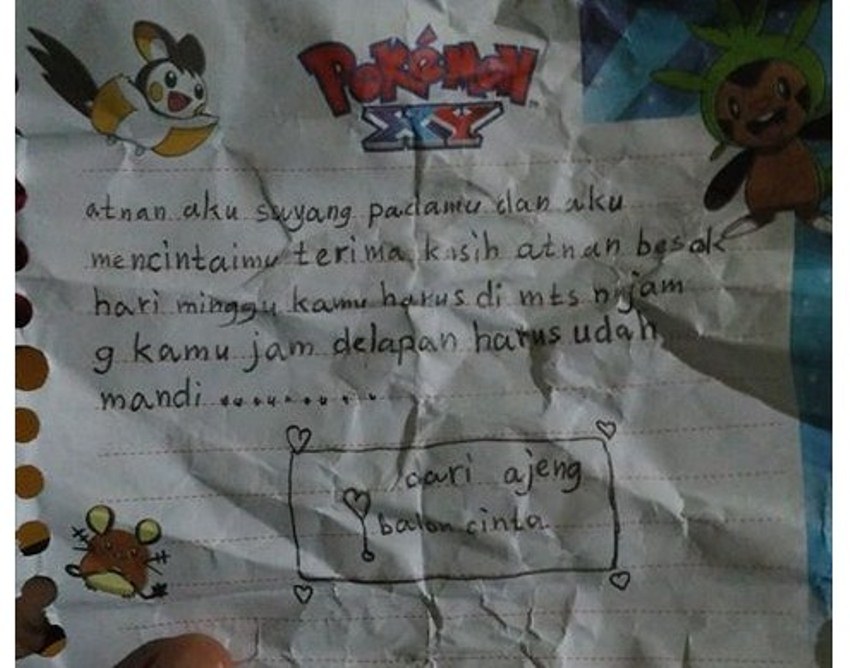 POKéMON
XY
atnan aku suyang padamu dan aku
mencintaimu terima kasih atnan besok
hari minggu kamu harus di mts n jam
9 kamu jam delapan harus udah
mandi ..........
dari ajeng
balon cinta